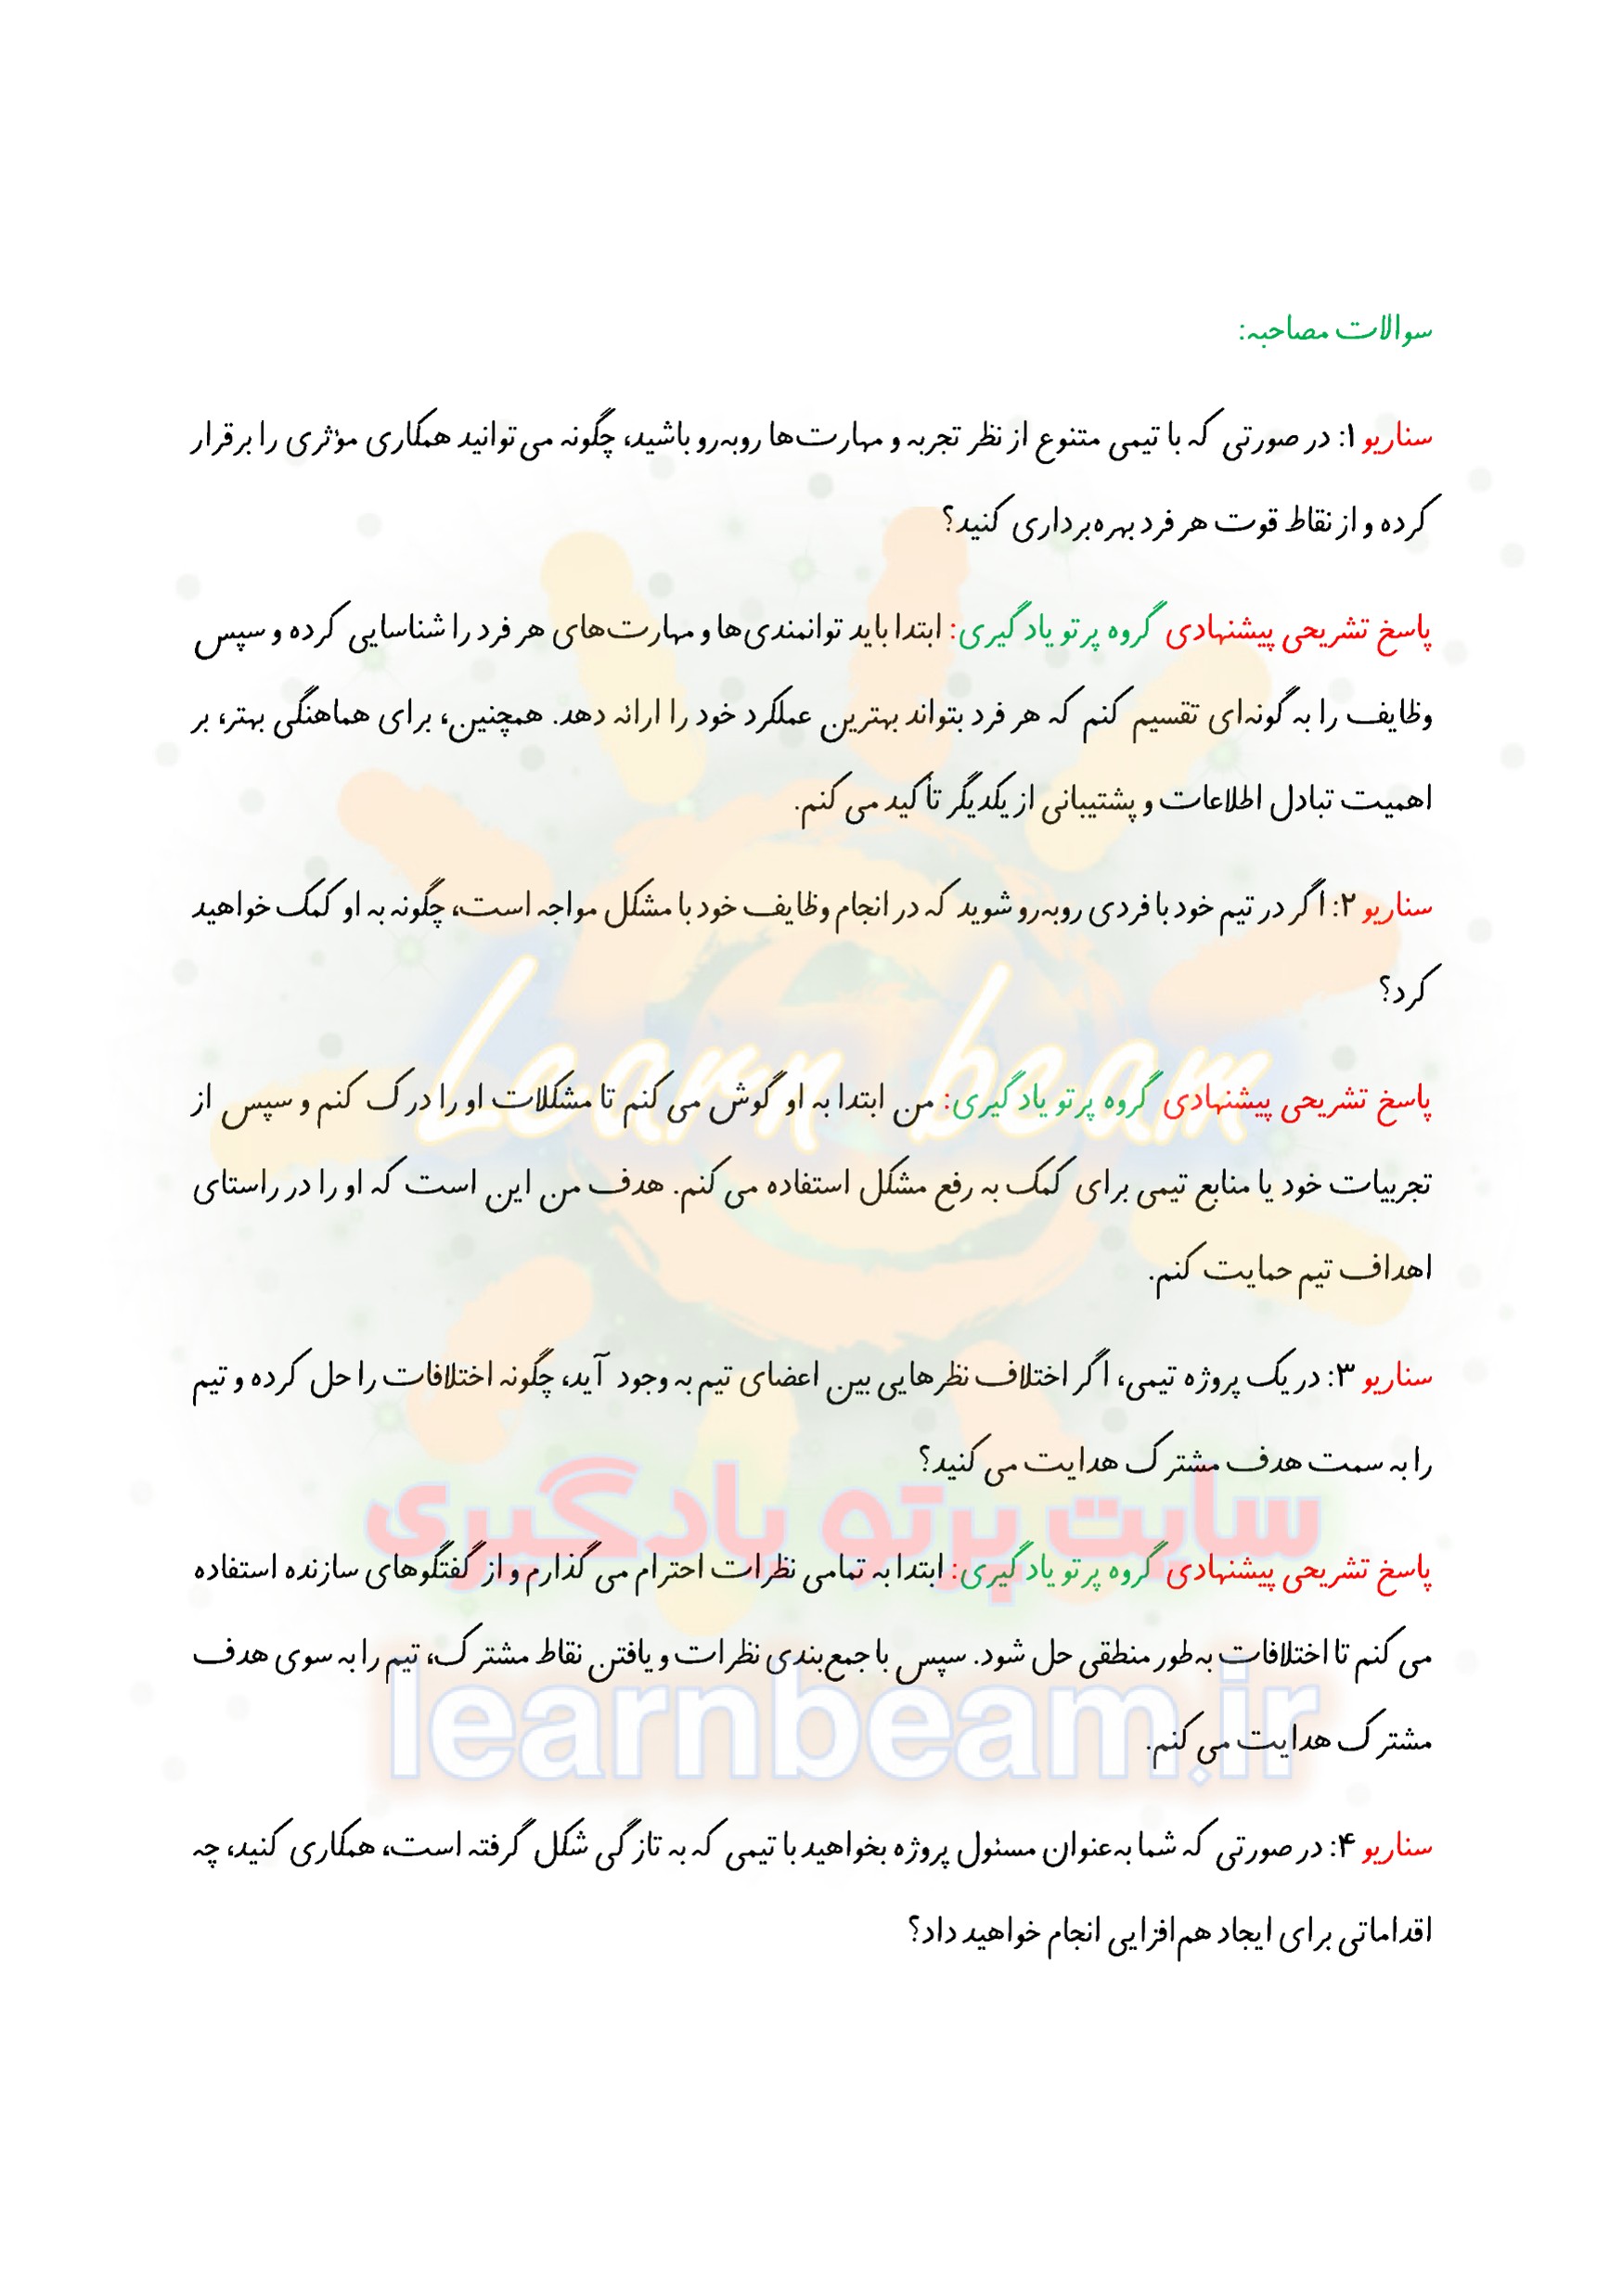 سوالات مصاحبه:
سناریو ۱: در صورتی که با تیمی متنوع از نظر تجربه و مهارت‌ها روبه‌رو باشید، چگونه می‌توانید همکاری مؤثری را برقرار
کرده و از نقاط قوت هر فرد بهره‌برداری کنید؟
پاسخ تشریحی پیشنهادی گروه پرتو یادگیری: ابتدا باید توانمندی‌ها و مهارت‌های هر فرد را شناسایی کرده و سپس
وظایف را به گونه‌ای تقسیم کنم که هر فرد بتواند بهترین عملکرد خود را ارائه دهد. همچنین، برای هماهنگی بهتر، بر
اهمیت تبادل اطلاعات و پشتیبانی از یکدیگر تأکید می‌کنم.
سناریو ۲: اگر در تیم خود با فردی روبه‌رو شوید که در انجام وظایف خود با مشکل مواجه است، چگونه به او کمک خواهید
کرد؟
Learn beam
پاسخ تشریحی پیشنهادی گروه پرتو یادگیری: من ابتدا به او گوش می‌کنم تا مشکلات او را درک کنم و سپس از
تجربیات خود یا منابع تیمی برای کمک به رفع مشکل استفاده می‌کنم. هدف من این است که او را در راستای
اهداف تیم حمایت کنم.
سناریو ۳: در یک پروژه تیمی، اگر اختلاف نظرهایی بین اعضای تیم به وجود آید، چگونه اختلافات را حل کرده و تیم
را به سمت هدف مشترک هدایت می‌کنید؟
سایت پرتو یادگیری
پاسخ تشریحی پیشنهادی گروه پرتو یادگیری: ابتدا به تمامی نظرات احترام می‌گذارم و از گفتگوهای سازنده استفاده
می‌کنم تا اختلافات به‌طور منطقی حل شود. سپس با جمع‌بندی نظرات و یافتن نقاط مشترک، تیم را به سوی هدف
learnbeam.ir
مشترک هدایت می‌کنم.
سناریو ۴: در صورتی که شما به‌عنوان مسئول پروژه بخواهید با تیمی که به تازگی شکل گرفته است، همکاری کنید، چه
اقداماتی برای ایجاد هم‌افزایی انجام خواهید داد؟